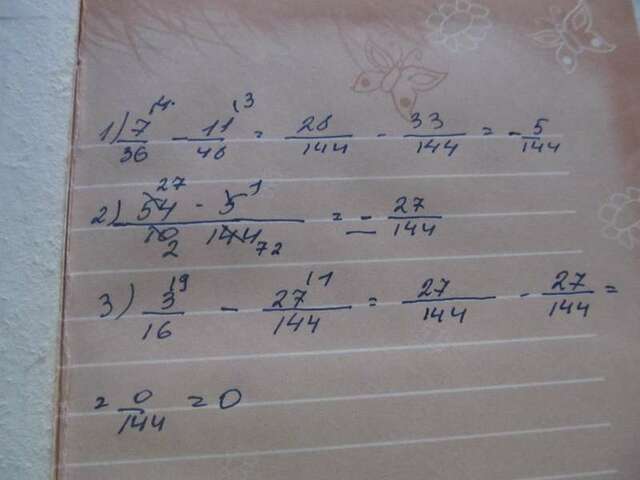 1) 7/36 |4 - 11/48 |3 = 28/144 - 33/144 = - 5/144
2) 54 27 · 5 1 / 10 2 144 72 = - 27/144
3) 3/16 |9 - 27/144 |1 = 27/144 - 27/144 =
= 0/144 = 0